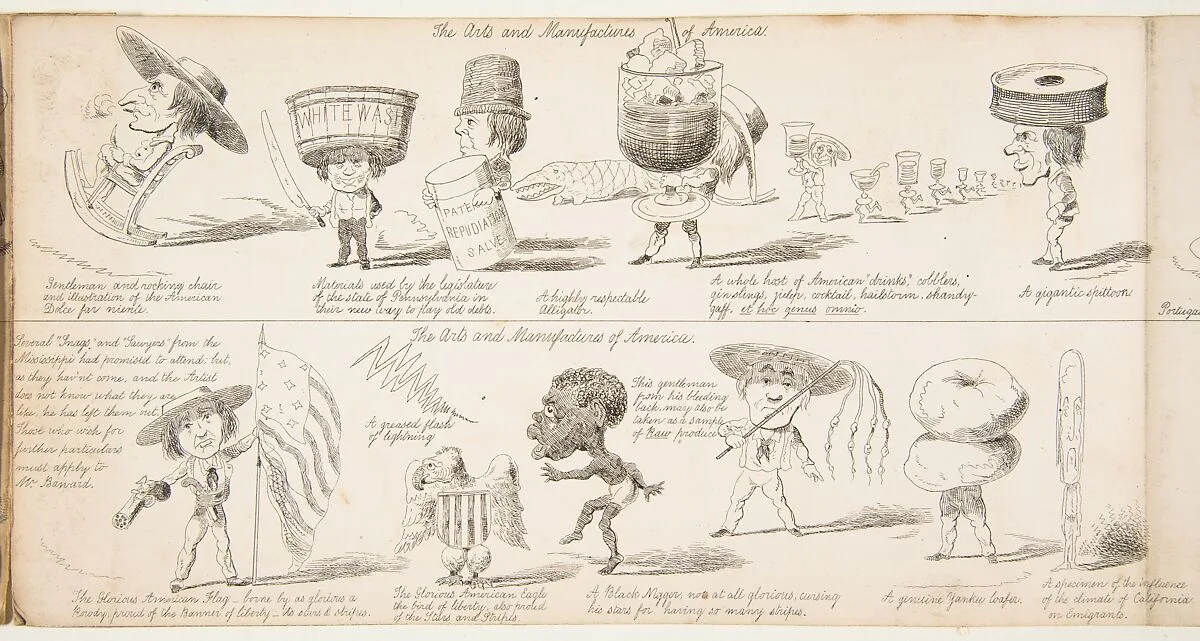 The Arts and Manufactures of America.
WHITEWASH
PATENT
REPUDIATION
SALVE
Gentleman and rocking chair
and illustration of the American
Dolce far niente.
Materials used by the legislature
of the state of Pennsylvania in
their new way to pay old debts.
A highly respectable
Alligator.
A whole host of American "drinks", cobblers,
ginslings, julep, cocktail, hailstorm, shandy-
gaff, et hoc genus omnio.
A gigantic spittoon.
The Arts and Manufactures of America.
Several "Snags" and "Sawyers" from the
Mississippi had promised to attend; but,
as they hav'nt come, and the Artist
does not know what they are
like, he has left them out.
Those who wish for
further particulars
must apply to
Mr. Banvard.
A greased flash
of lightning
This gentleman
from his bleeding
back, may also be
taken as a sample
of Raw produce
The Glorious American Flag _ borne by as glorious a
Rowdy, proud of the Banner of liberty _ its stars & stripes.
The Glorious American Eagle
the bird of liberty, also proud
of the Stars and Stripes.
A Black Nigger, not at all glorious, cursing
his stars for having so many stripes.
A genuine Yankee loafer.
A specimen of the influence
of the climate of California
on Emigrants.